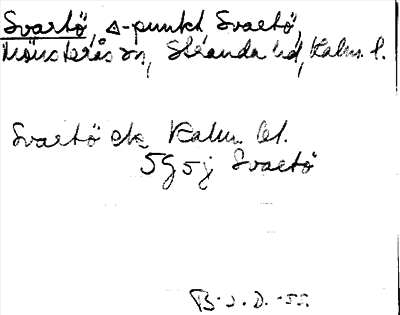 Svartö, △-punkt Svartö,
Mönsterås sn, Stranda hd, Kalm. l.
Svartö ek Kalm. l.
5G5j Svartö
B.J.D. -55.